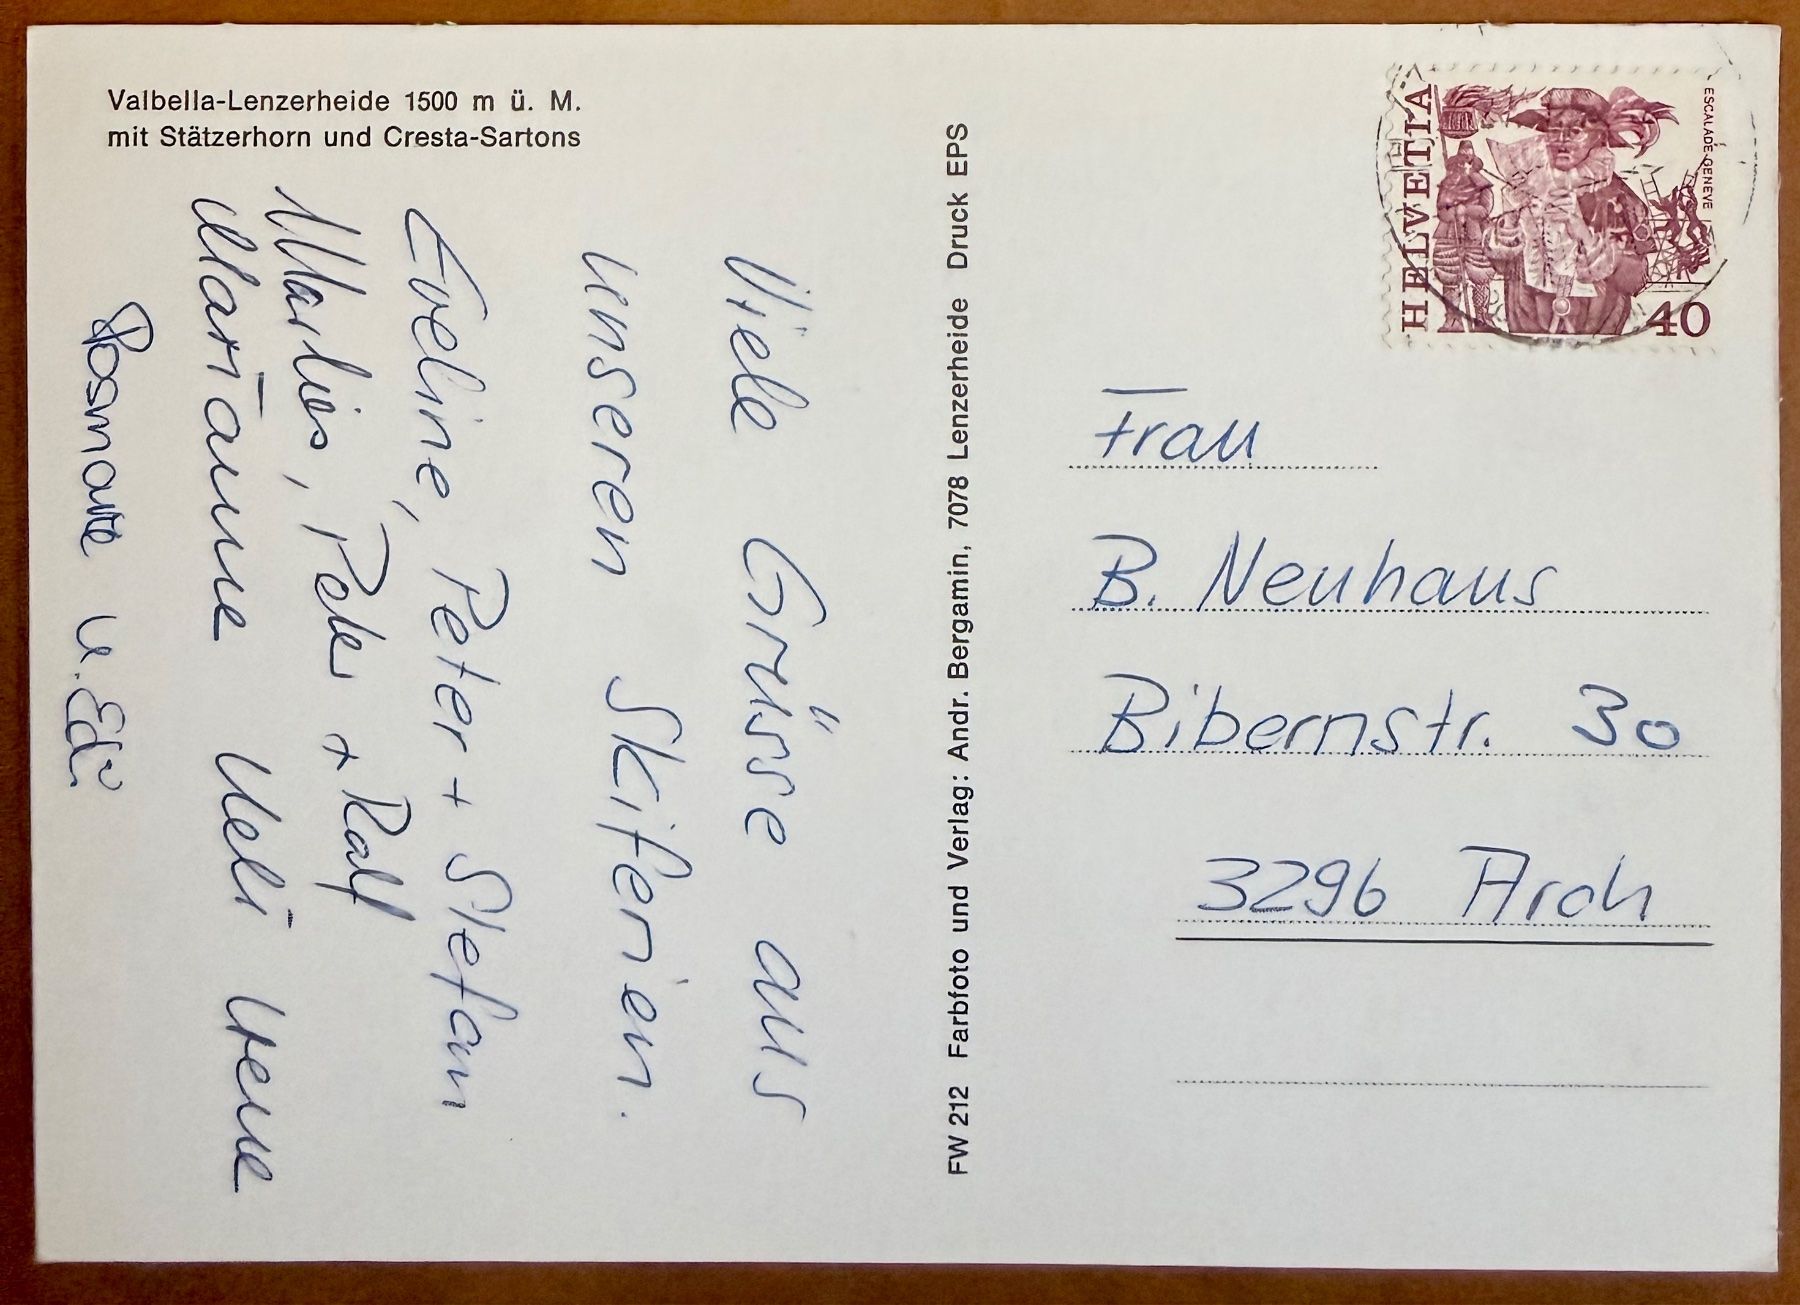 Valbella-Lenzerheide 1500 m ü. M.
mit Stätzerhorn und Cresta-Sartons
Viele Grüsse aus
unseren Skiferien.
Eveline, Peter + Stefan
Marlies, Peter + Ralf
Marianne Ueli Irene
Rosmarie u. Edi
FW 212 Farbfoto und Verlag: Andr. Bergamin, 7078 Lenzerheide Druck EPS
HELVETIA
ESCALADE GENEVE
40
Frau
B. Neuhaus
Bibernstr. 30
3296 Arch